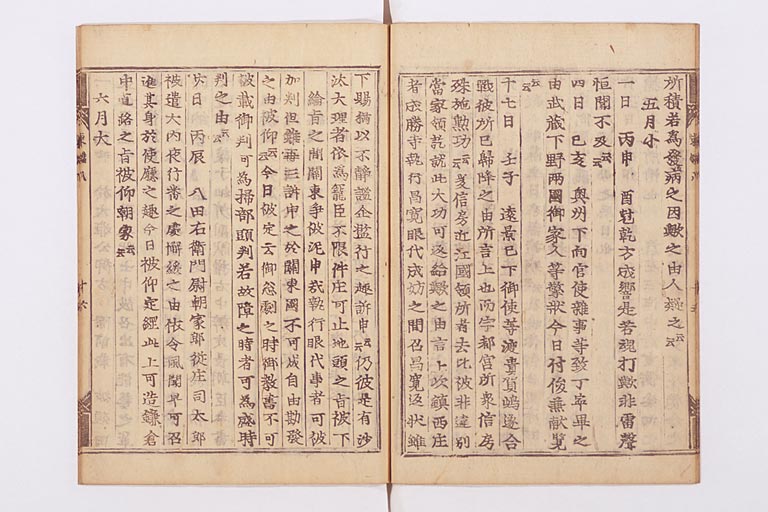 所積若為發病之因歟之由人疑之云云
五月小
一日 丙申 酉尅乾方成響是若魂打歟非雷聲
恒聞不及云云
四日 己亥 奧州下向官使雜事等致丁寧畢之
由武蔵下野兩國御家人等擎狀今日付俊兼献覧
云云
十七日 壬子 遠景已下御使等渡貴賀嶋遂合
戰彼所已歸降之由所言上也而宇都宮所衆信房
殊施勲功云云爰信房近江國領所者去比依非違別
當家領状就此大功可返給歟之由言上次鎮西庄
者成勝寺執行昌寛眼代成妨之間召昌寛返状雖
下賜猶以不静謐企濫行之趣訴申云云仍彼是有沙
汰大理者依為寵臣不限件庄可止地頭之旨被下
綸旨之間關東争彼泥申哉執行眼代事者可被
加判但雖再三訴申之於關東國不可成自由勘發
之由被仰云云今日被定云御忩劇之時御教書不可
被載御判可為掃部頭判若故障之時者可為盛時
判之由云云
廿日 丙辰 八田右衛門尉朝家郎從庄司太郎
被遣大内夜行番之處懈緩之由依令風聞早可召
進其身於使廳之趣今日被仰定經此上可造鎌倉
中道路之旨被仰朝家云云
六月大